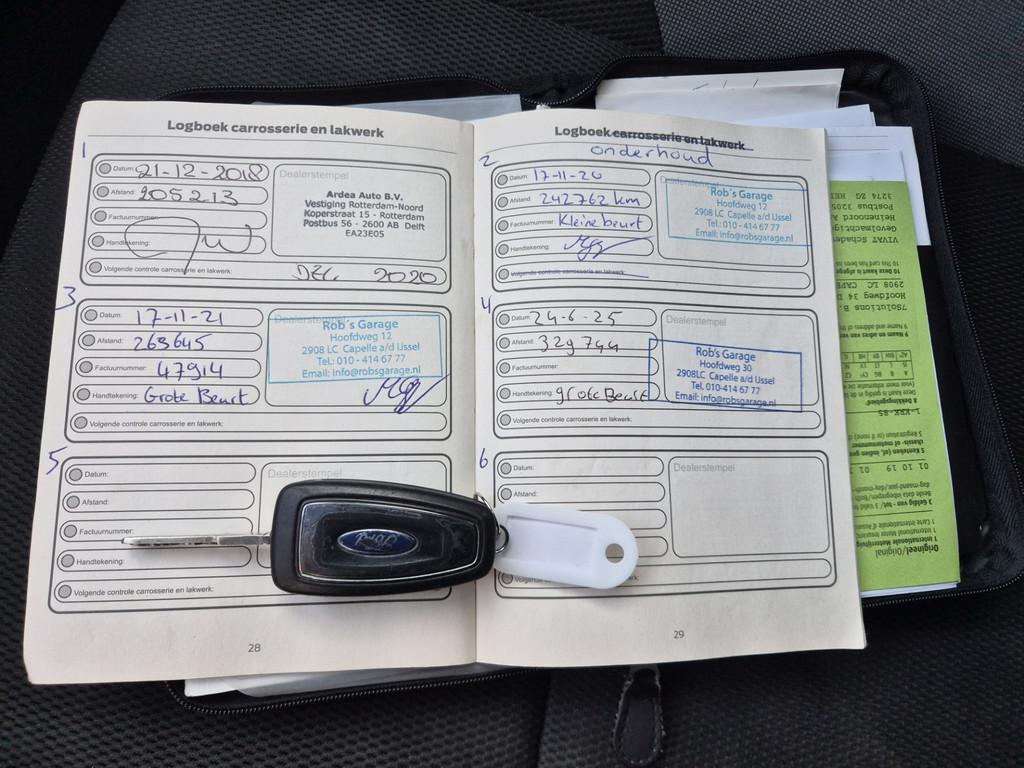 Logboek carrosserie en lakwerk
1
Datum: 21-12-2018
Afstand: 205213
Factuurnummer:
Handtekening:
Volgende controle carrosserie en lakwerk: DEC 2020
Dealerstempel
Ardea Auto B.V.
Vestiging Rotterdam-Noord
Koperstraat 15 - Rotterdam
Postbus 56 - 2600 AB Delft
EA23E05
3
Datum: 17-11-21
Afstand: 269645
Factuurnummer: 47914
Handtekening: Grote Beurt
Volgende controle carrosserie en lakwerk:
Dealerstempel
Rob's Garage
Hoofdweg 12
2908 LC Capelle a/d IJssel
Tel.: 010 - 414 67 77
Email: info@robsgarage.nl
5
Datum:
Afstand:
Factuurnummer:
Handtekening:
Volgende controle carrosserie en lakwerk:
Dealerstempel
Ford
28
Logboek carrosserie en lakwerk
onderhoud
2
Datum: 17-11-20
Afstand: 242762 km
Factuurnummer: Kleine beurt
Handtekening:
Volgende controle carrosserie en lakwerk:
Dealerstempel
Rob's Garage
Hoofdweg 12
2908 LC Capelle a/d IJssel
Tel.: 010 - 414 67 77
Email: info@robsgarage.nl
4
Datum: 24-6-25
Afstand: 329744
Factuurnummer:
Handtekening: grote Beurt
Volgende controle carrosserie en lakwerk:
Dealerstempel
Rob's Garage
Hoofdweg 30
2908LC Capelle a/d IJssel
Tel. 010-414 67 77
Email: info@robsgarage.nl
6
Datum:
Afstand:
Dealerstempel
Volgende controle carrosserie en lakwerk:
29
Origineel/Original
01 10 19 01
1-KRK-85
Hoofdweg 34
2908 LC CAPE
VIVAT Schaden
Heinenoord
Postbus 3205
3274 ZG HEI